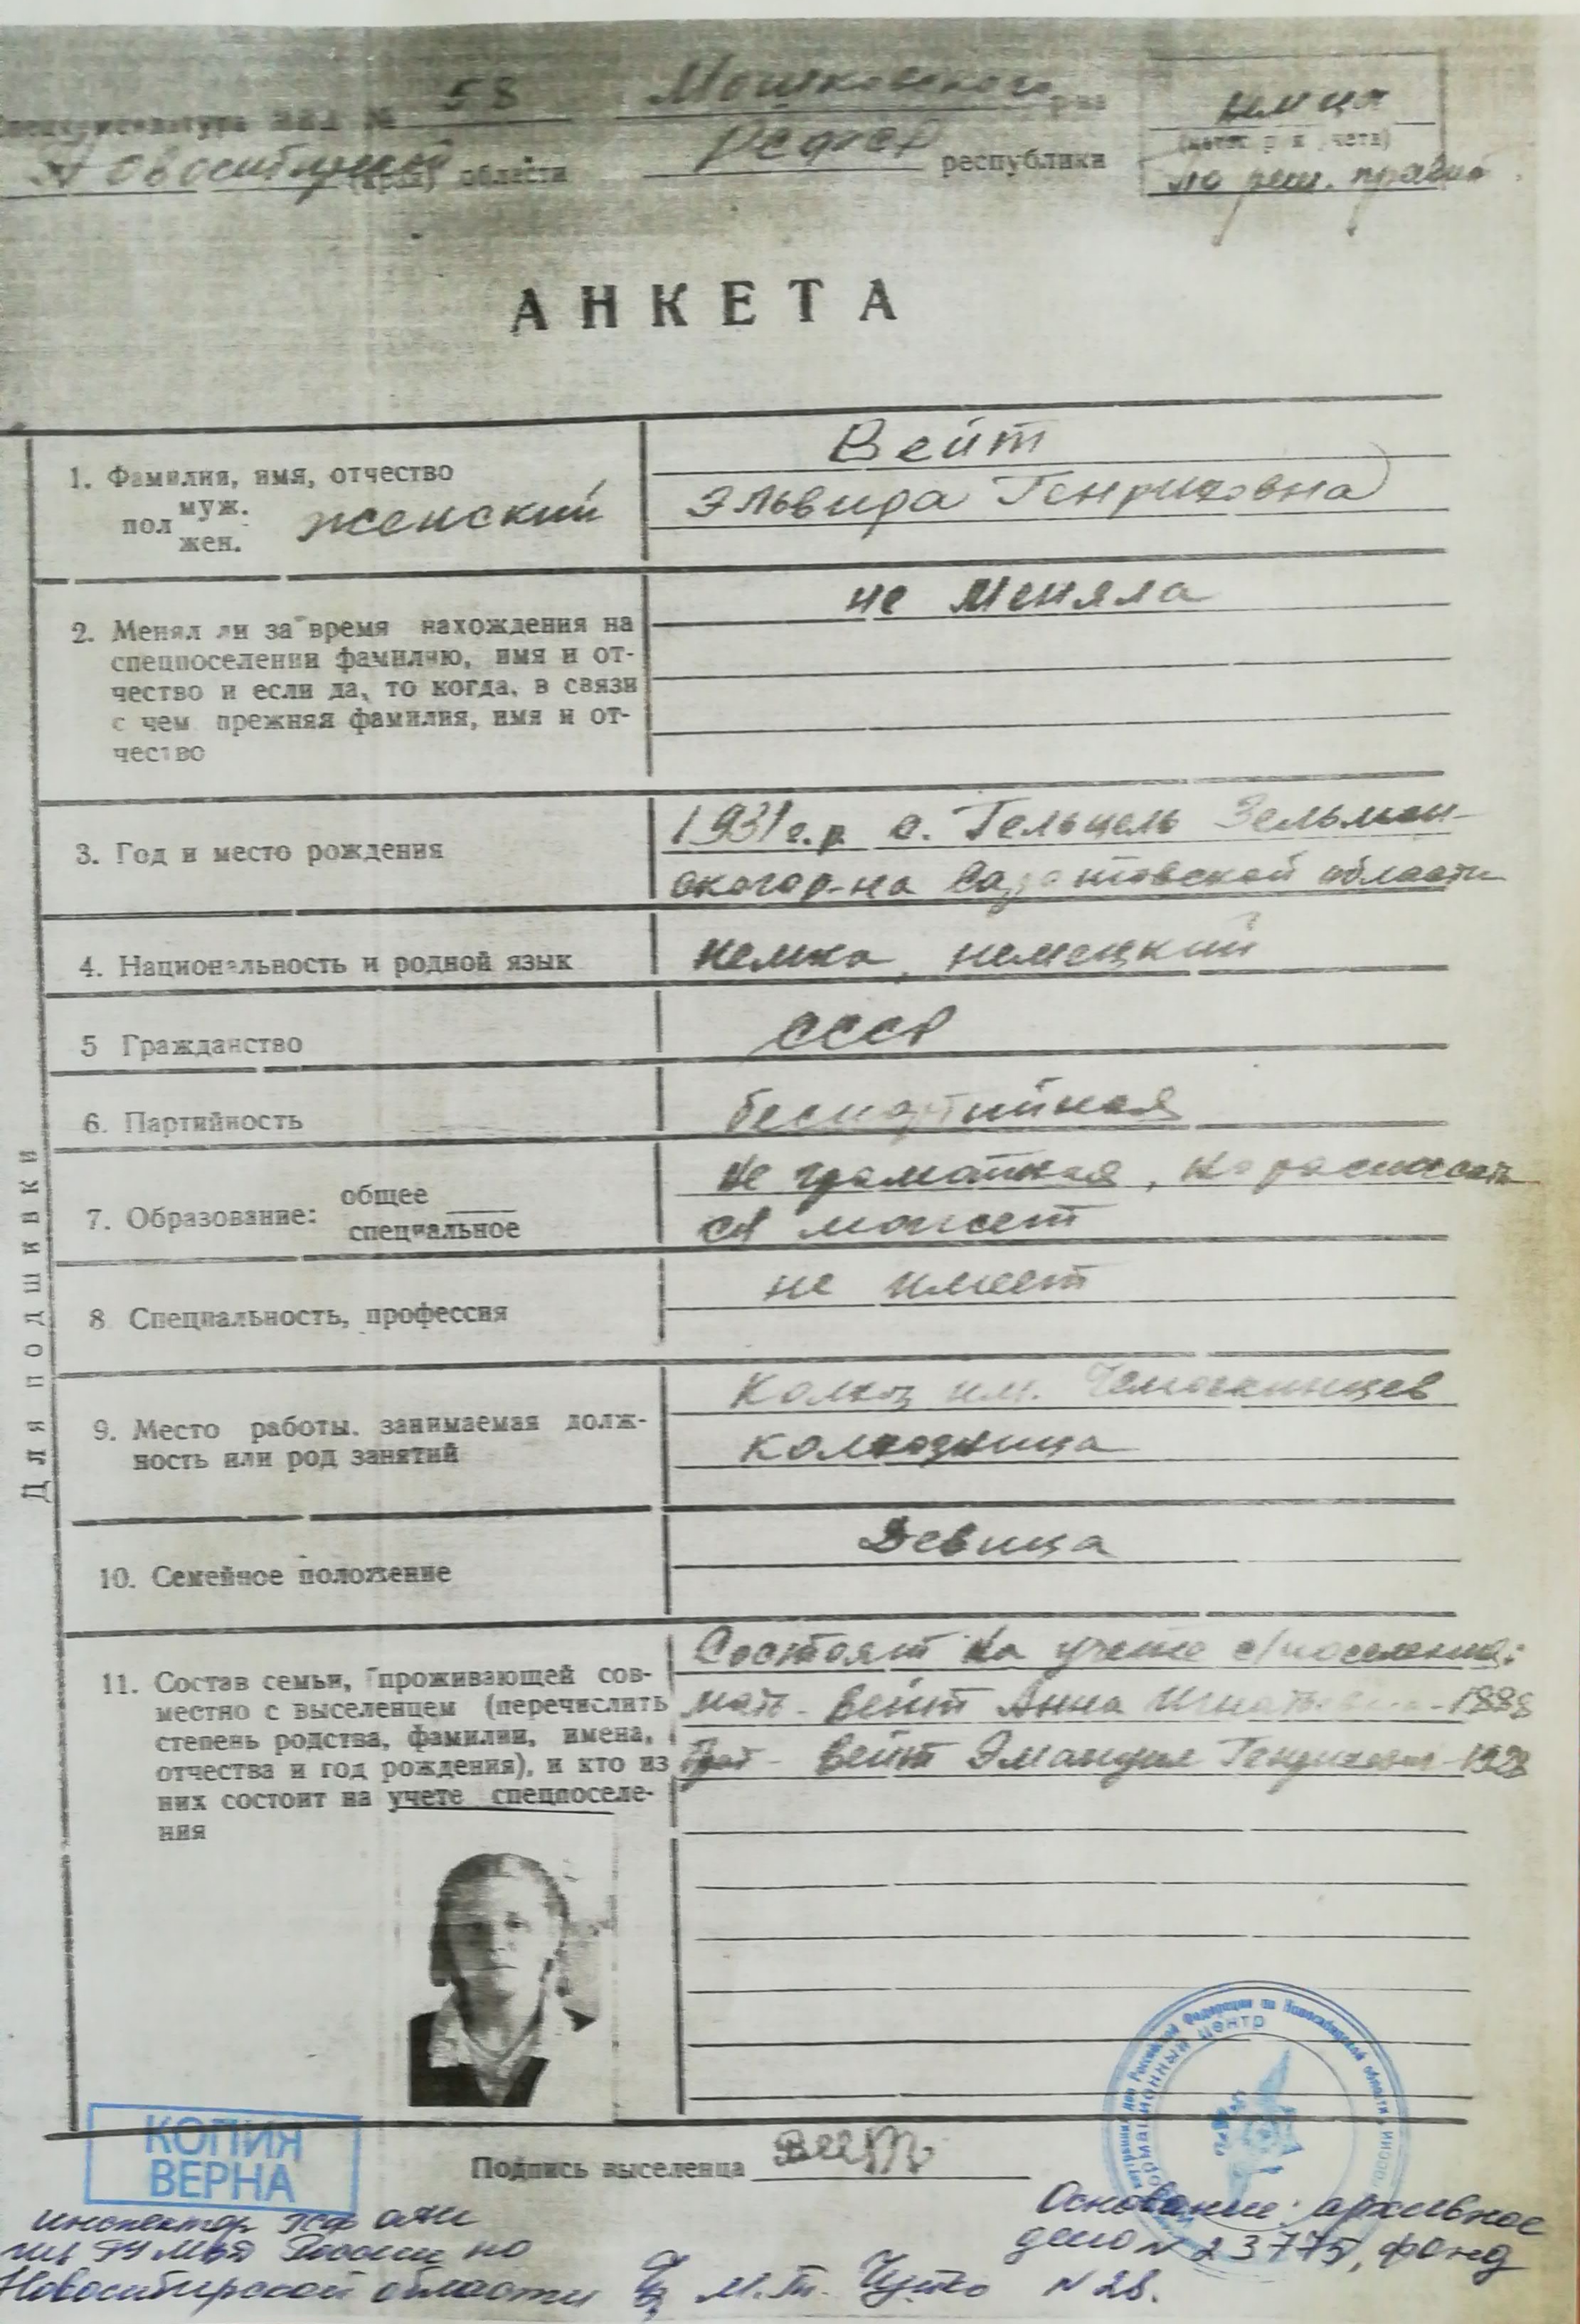 Спецкомендатура МВД № 58 Мошковского р-на
Новосибирской (край) области РСФСР республики
немцы
(катег р я учета)
по реш. правит
АНКЕТА
1. Фамилия, имя, отчество
пол муж. жен. женский
Вейт
Эльвира Генриховна
2. Менял ли за время нахождения на
спецпоселении фамилию, имя и от-
чество и если да, то когда, в связи
с чем прежняя фамилия, имя и от-
чество
не меняла
3. Год и место рождения
1931 г.р. с. Гельцель Зельман-
ского р-на Саратовской области
4. Национальность и родной язык
немка, немецкий
5 Гражданство
СССР
6. Партийность
беспартийная
7. Образование: общее
специальное
не граматная, но расписать
ся может
8 Специальность, профессия
не имеет
9. Место работы. занимаемая долж-
ность или род занятий
Колхоз им.
колхозница
10. Семейное положение
Девица
11. Состав семьи, проживающей сов-
местно с выселенцем (перечислить
степень родства, фамилии, имена,
отчества и год рождения), и кто из
них состоит на учете спецпоселе-
ния
Состоят на учете с/поселения:
мать - Вейт Анна Игнатьевна - 1888
брат - Вейт Генрихович - 1928
Для подшивки
Подпись выселенца Вейт
КОПИЯ
ВЕРНА
информационный центр
инспектор
России по
Новосибирской области М.Т.
Основание: архивное
дело N 23775, фонд
N 28.